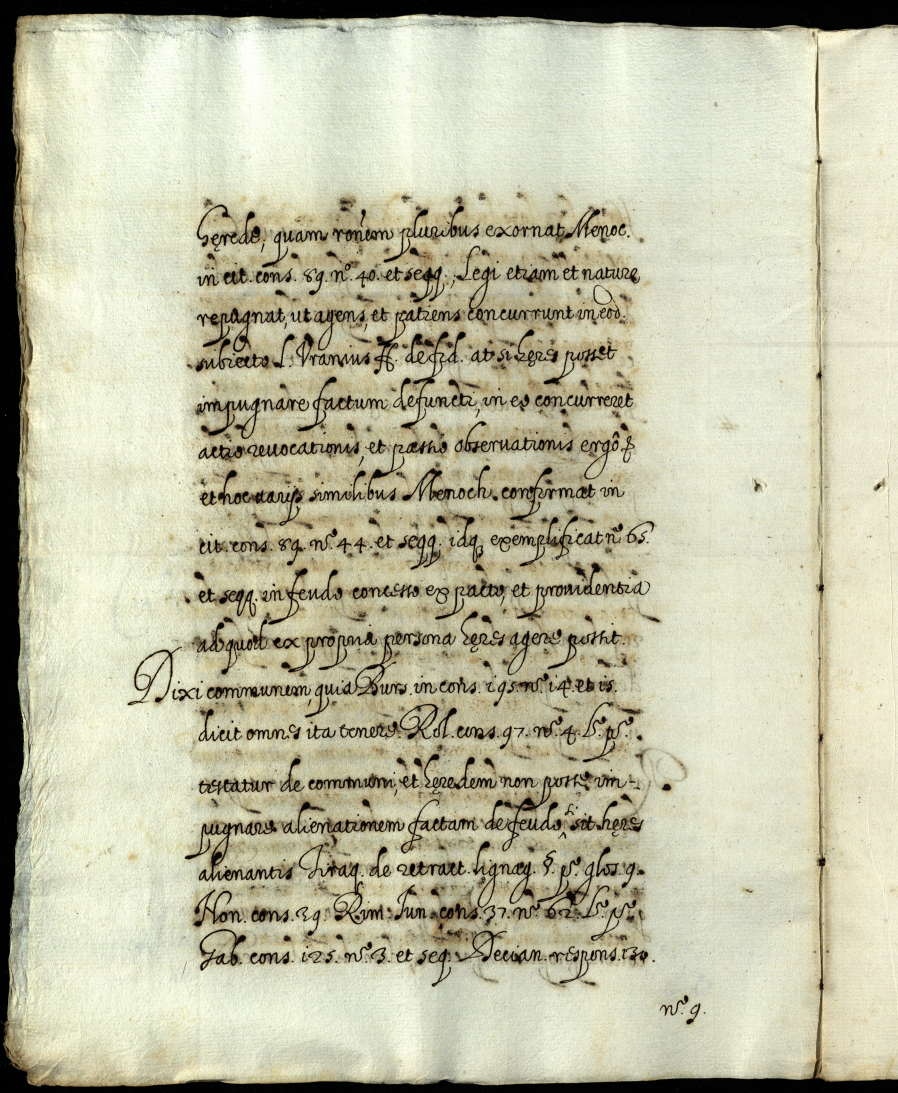 hęrede, quam ronem pluribus exornat Menoc.
in cit. cons. 89. nº. 40. et seqq., Legi etiam et naturę
repugnat, ut agens, et patiens concurrunt in eod.
subiecto l. Vranius ff. de fid. at si hęres posset
impugnare factum defuncti, in eo concurreret
actio revocationis, et pastio observationis ergô
et hoc varijs similibus Menoch. confirmat in
cit. cons. 89. nº. 44. et seqq. idq. exemplificat nº 65.
et seqq. in feudo concesso ex pacto, et providentia
ad quod ex propria persona hęres agere possit.
Dixi communem, quia Burs. in cons. 195. nº. 14. et 15.
dicit omnes ita tenere. Rol. cons. 97. nº. 4. lº. pº.
testatur de communi, et hęredem non posse im-
pugnare alienationem factam de feudo, si sit hęres
alienantis Tiraq. de retract. lignag. §. pº. glos. 9.
Non. cons. 39. Rim. Iun. cons. 37. nº. 62. lº. pº.
Gab. cons. 125. nº. 3. et seq. Decian. respons. 130.
nº. 9.